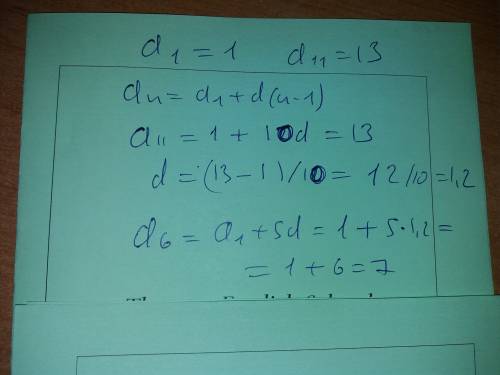 a₁ = 1 a₁₁ = 13
aₙ = a₁ + d(n-1)
a₁₁ = 1 + 10d = 13
d = (13 - 1)/10 = 12/10 = 1,2
a₆ = a₁ + 5d = 1 + 5·1,2 =
= 1 + 6 = 7